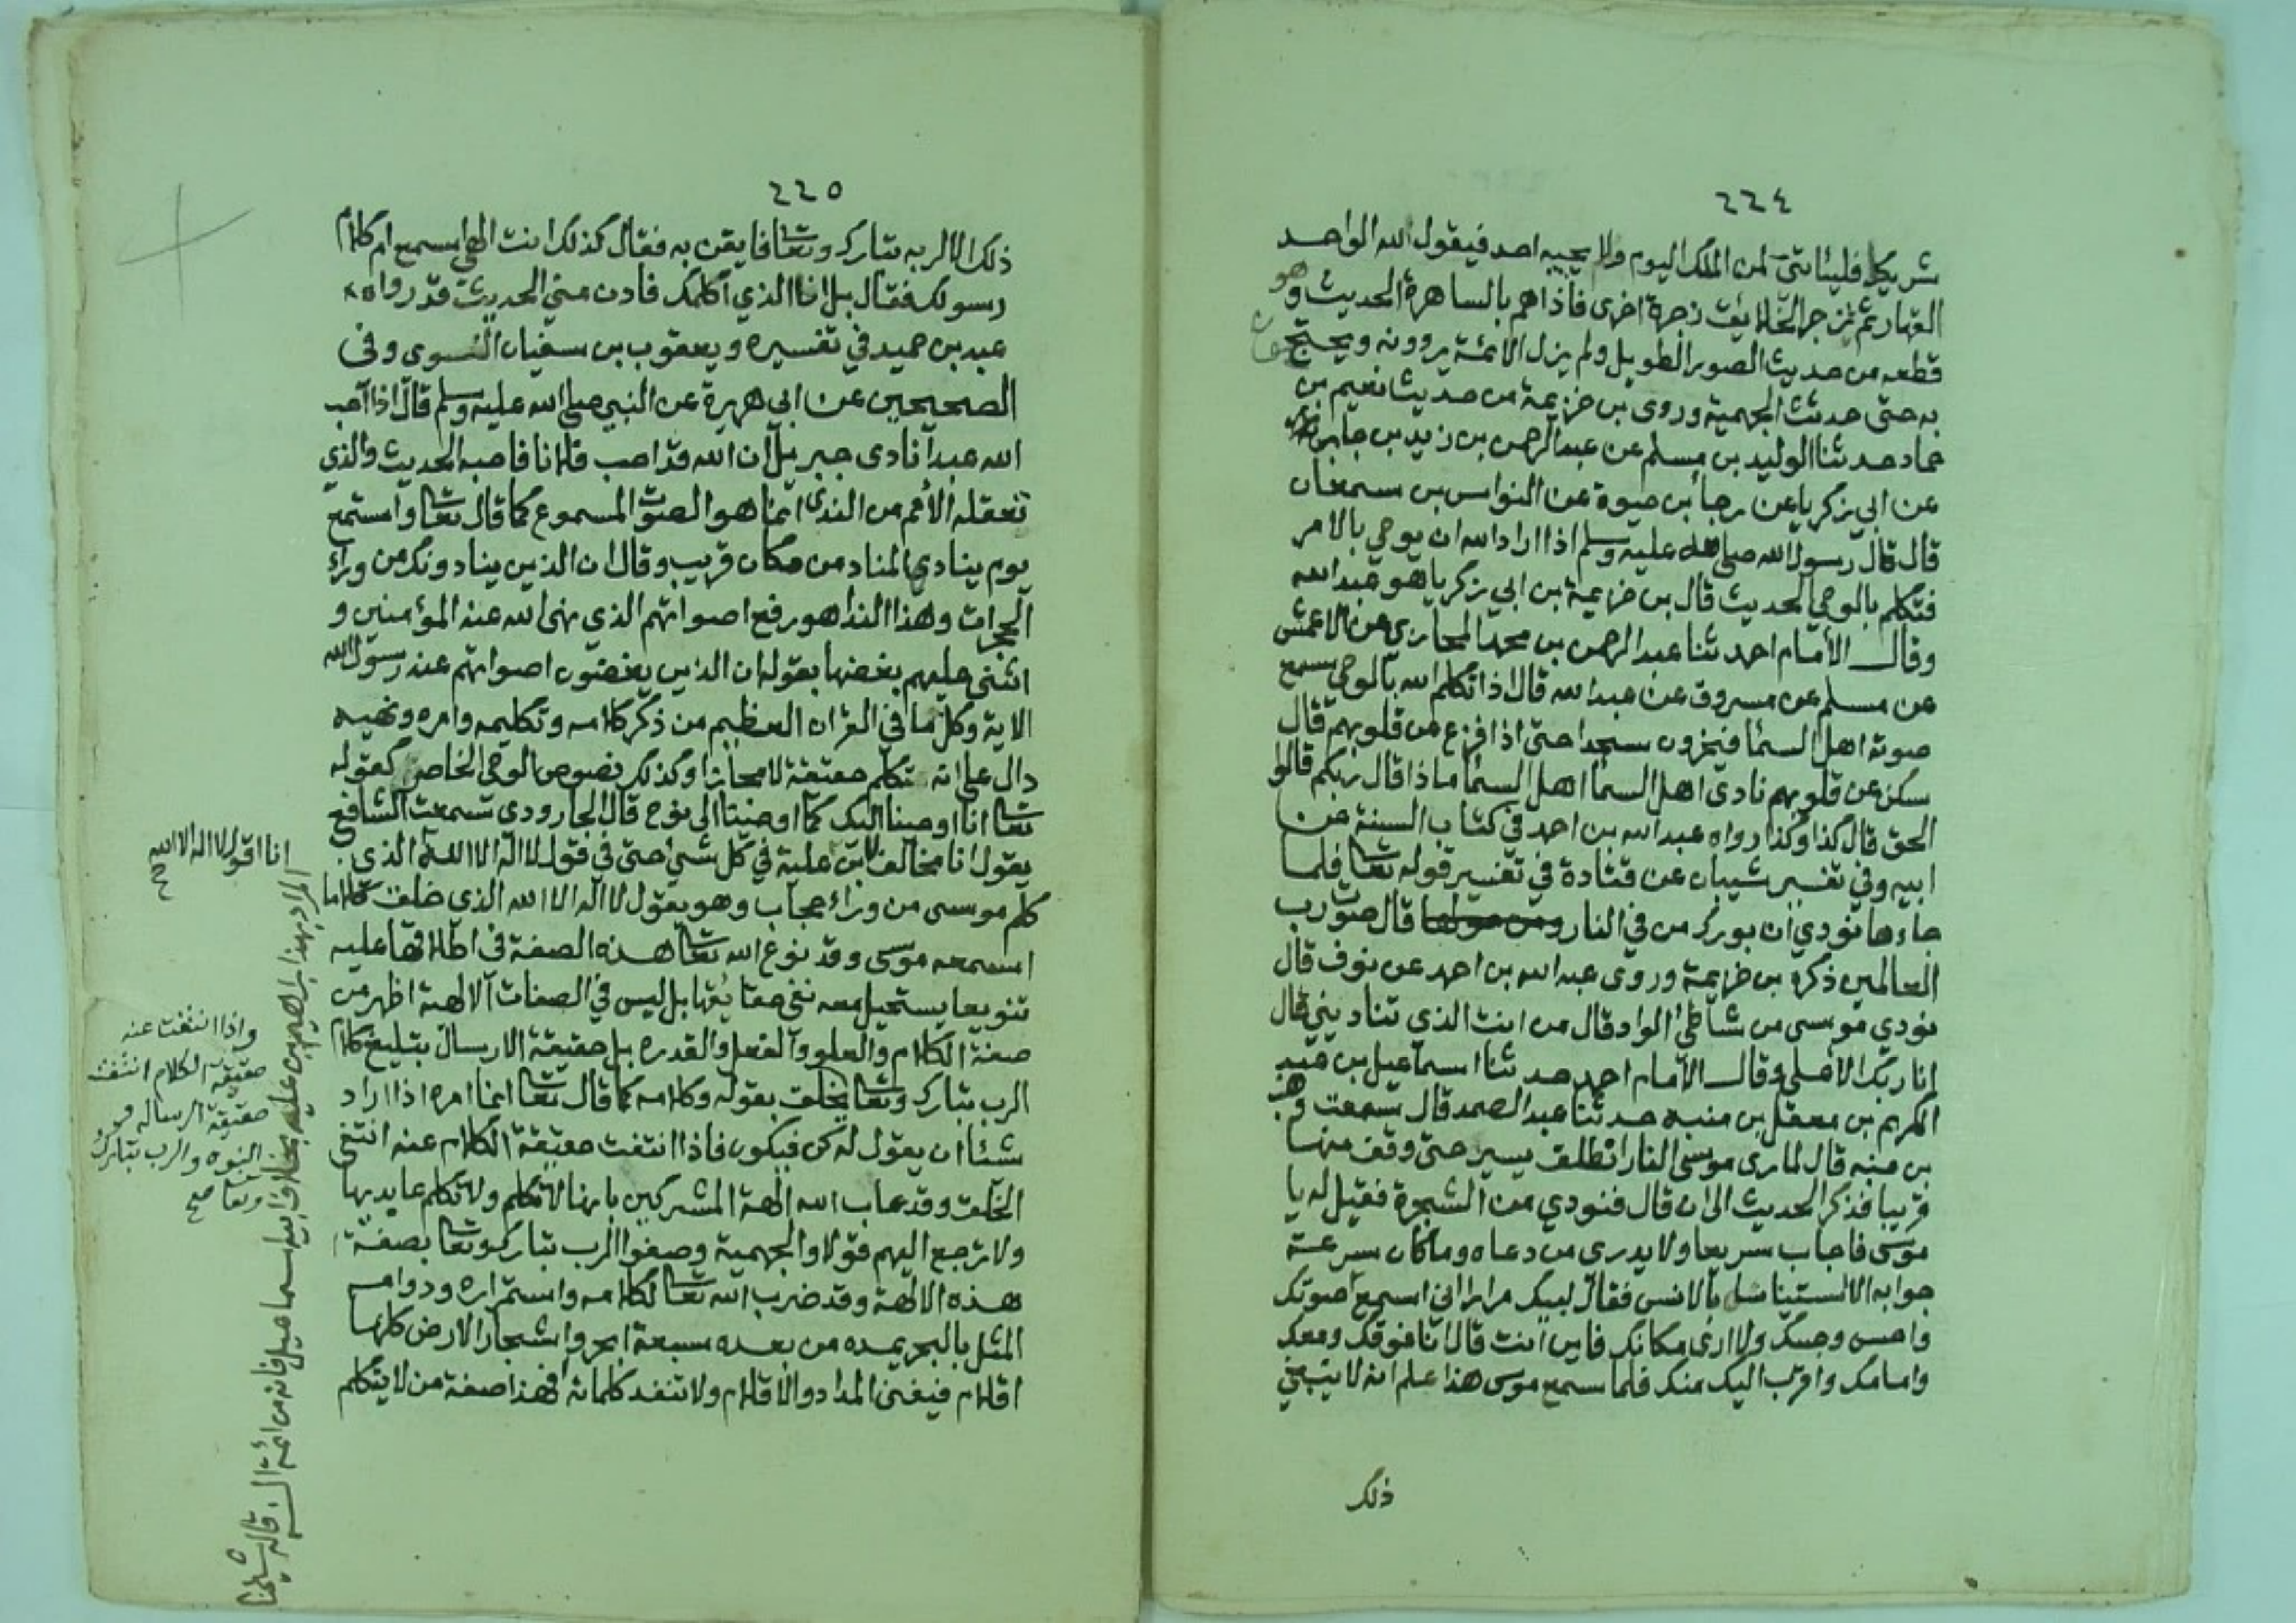 ٢٢٤
شريكا فليأتني لمن الملك اليوم ولا يجيبه احد فيقول الله الواحد
القهار ثم يزجر الخلائق زجرة اخرى فاذا هم بالساهرة الحديث وهو
قطعه من حديث الصور الطويل ولم يزل الائمة يروونه ويحتج
به حتى حدثت الجهمية وروى بن خزيمة من حديث نعيم بن
حماد حدثنا الوليد بن مسلم عن عبد الرحمن بن زيد بن جابر
عن ابي زكريا عن رجا بن حيوة عن النواس بن سمعان
قال قال رسول الله صلى الله عليه وسلم اذا اراد الله ان يوحي بالامر
فتكلم بالوحي الحديث قال بن خزيمة بن ابي زكريا هو عبد الله
وقال الأمام احمد ثنا عبد الرحمن بن محمد المحاربي عن الاعمش
عن مسلم عن مسروق عن عبد الله قال اذا تكلم الله بالوحي سمع
صوته اهل السما فيخرون سجدا حتى اذا فزع عن قلوبهم قال
سكن عن قلوبهم نادى اهل السما اهل السما ماذا قال ربكم قالوا
الحق قال كذا وكذا رواه عبد الله بن احمد في كتاب السنة عن
ابيه وفي تفسير شيبان عن قتادة في تفسير قوله تعا فلما
جاءها نودي أن بورك من في النار ومن حولها قال صوت رب
العالمين ذكره بن خزيمة وروى عبد الله بن احمد عن نوف قال
نودي موسى من شاطئ الواد قال من انت الذي تناديني قال
انا ربك الأعلى وقال الأمام احمد حدثنا اسماعيل بن عبد
الكريم بن معقل بن منبه حدثنا عبد الصمد قال سمعت وهب
بن منبه قال لما رى موسى النار انطلق يسير حتى وقف منها
قريبا فذكر الحديث الى ان قال فنودي من الشجرة فقيل له يا
موسى فاجاب سريعا ولا يدري من دعاه وما كان سرعة
جوابه الا استيناسا بالانس فقال لبيك مرارا اني اسمع صوتك
واحس وجسك ولا ارى مكانك فاين انت قال انا فوقك ومعك
وامامك واقرب اليك منك فلما سمع موسى هذا علم انه لا ينبغي
ذلك
٢٢٥
ذلك الا لربه تبارك وتعا فايقن به فقال كذلك انت الهي اسمع ام كلام
رسولك فقال بل انا الذي اكلمك فادن مني الحديث قد رواه
عبد بن حميد في تفسيره ويعقوب بن سفيان الفسوى وفى
الصحيحين عن ابي هريرة عن النبي صلى الله عليه وسلم قال اذا احب
الله عبدا نادى جبريل ان الله قد احب فلانا فاحبه الحديث والذي
تعقله الأمم من الندى انما هو الصوت المسموع كما قال تعا واستمع
يوم ينادي المناد من مكان قريب وقال ان الذين ينادونك من وراء
الحجرات وهذا الندا هو رفع اصواتهم الذي نهى الله عنه المؤمنين و
اثنى عليهم بغضها بقوله ان الذين يغضون اصواتهم عند رسول الله
الاية وكل ما في القران العظيم من ذكر كلامه وتكليمه وامره ونهيه
دال على انه تكلم حقيقة لا مجازا وكذلك نصوص الوحي الخاص كقوله
تعا انا اوحينا اليك كما اوحينا الى نوح قال الجارودي سمعت الشافعي
يقول انا مخالف لابن علية في كل شيئ حتى في قول لا اله الا الله الذي
كلم موسى من وراء حجاب وهو يقول لا اله الا الله الذي خلق كلاما
اسمعه موسى وقد نوع الله تعا هذه الصفة في اطلاقها عليه
تنويعا يستحيل معه نفي حقايقها بل ليس في الصفات الالهية اظهر من
صفة الكلام والعلو والفعل والقدره بل حقيقة الارسال تبليغ كلام
الرب تبارك وتعا يخلق بقوله وكلامه كما قال تعا انما امره اذا اراد
شيئا ان يقول له كن فيكون فاذا انتفت حقيقة الكلام عنه انتفى
الخلق وقد عاب الله الهة المشركين بانها لا تكلم ولا تكلم عابديها
ولا ترجع اليهم قولا والجهمية وصفوا الرب تبارك وتعا بصفة
هذه الالهة وقد ضرب الله تعا لكلامه واستمراره ودوامه
المثل بالبحر يمده من بعده سبعة ابحر واشجار الارض كلها
اقلام فيفنى المداد والاقلام ولا تنفد كلماته افهذا صفة من لا يتكلم
انا اقول لا اله الا الله
المراد بهذا ابراهيم بن علية بخلاف ابيه اسماعيل فانه من ائمة السنة قاله شيخنا
واذا انتفت عنه
حقيقة الكلام انتفت
حقيقة الرساله و
النبوه والرب تبارك
وتعا صح